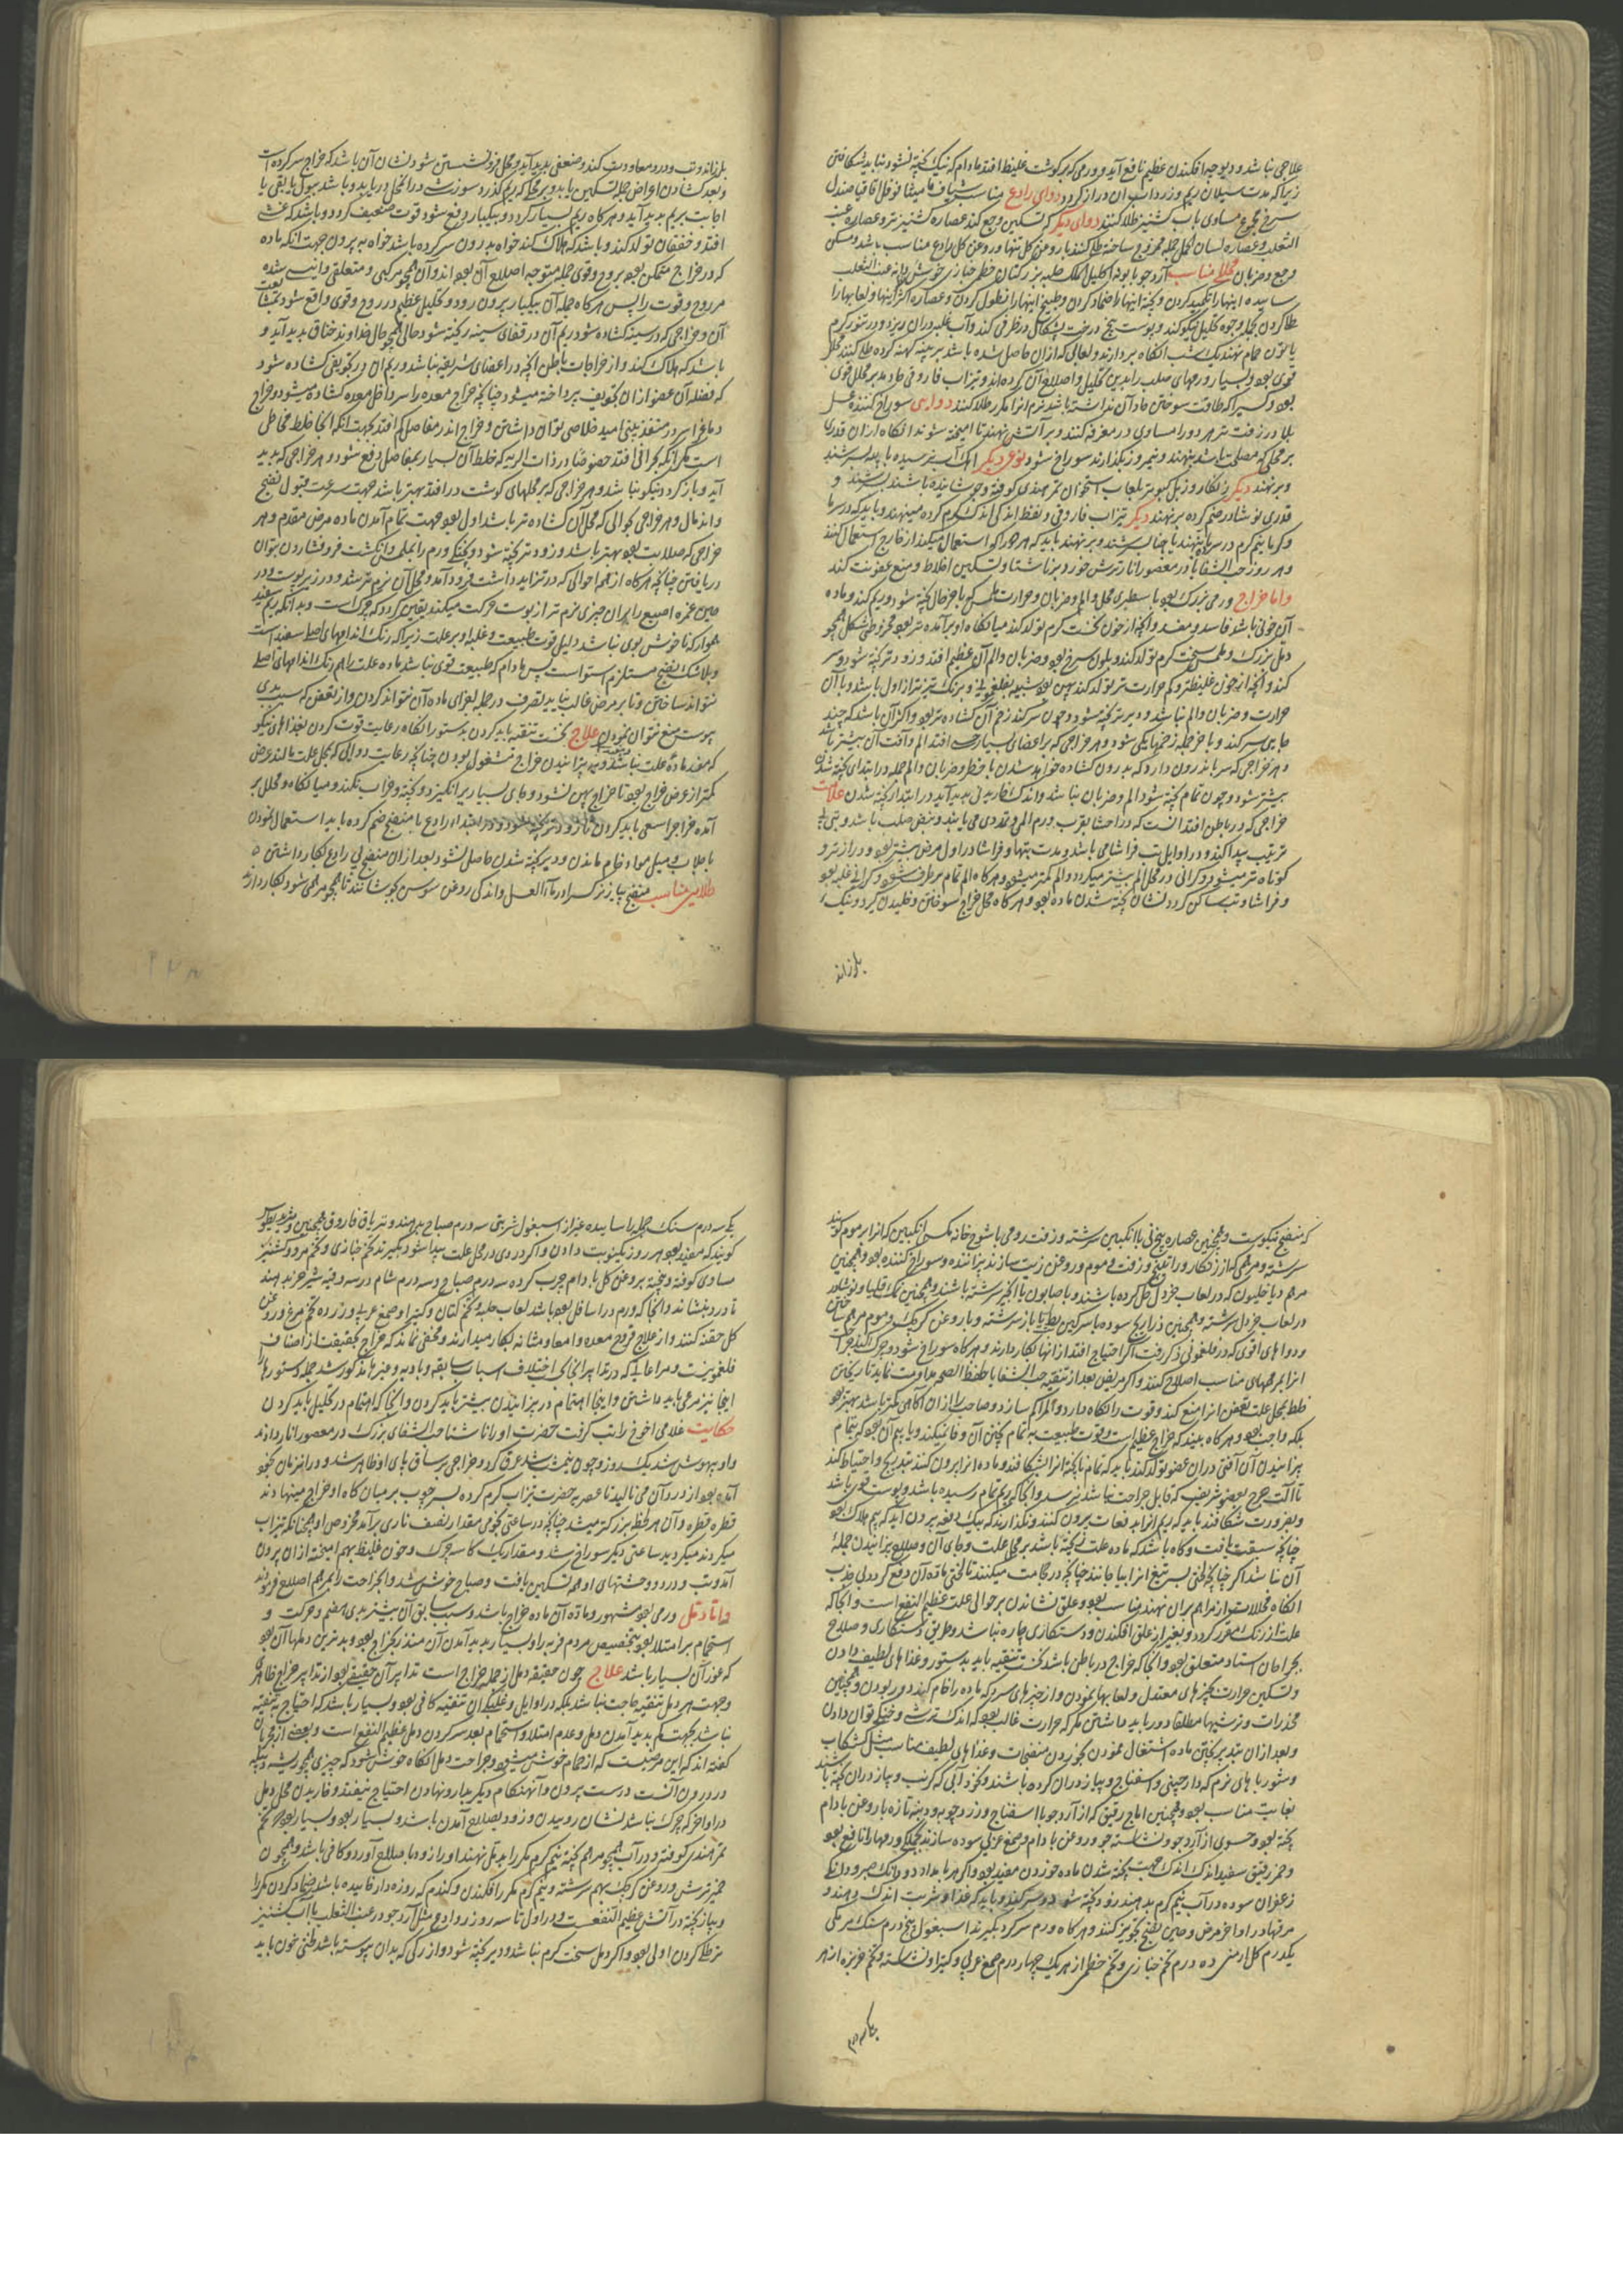 علاجی نباشد و دیوچه افکندن عظیم نافع آید و ورمی که بر گوشت غلیظ افتد مادام که نیک پخته نشود نباید شکافتن
زیرا که مدت سیلان ریم و زرداب آن دراز گردد دوای رادع مناسب شیاف مامیثا فوفل اقاقیا صندل
سرخ مجموع مساوی باب کشنیز طلا کنند دوای دیگر که تسکین وجع کند عصاره کشنیز تر و عصاره عنب
الثعلب و عصاره لسان الحمل جمله ممزوج ساخته طلا کنند با روغن گل تنها و روغن گل رادع مناسب باشد و مسکن
وجع و ضربان محلل مناسب آرد جو بابونه اکلیل الملک حلبه بزر کتان خطمی خبازی عنب الثعلب
ساییده اینها را تکمید کردن و پخته اینها را ضماد کردن و طبیخ اینها را نطول کردن و عصاره اکثر اینها و لعابها را
طلا کردن بجمله وجوه تحلیل نیکو کند و پوست بیخ درخت در ظرفی کند و آب غلبه بر آن ریزد و در تنور گرم
یا تون حمام نهند یک شب آنگاه بردارند و لعابی که از آن حاصل شده باشد بر پنبه کهنه کرده طلا کنند محلل
قوی بود و بسیار ورمهای صلب را بدین تحلیل و اصلاح کرده‌اند و تیزاب فاروقی حاد مدبر محلل قوی
بود و کسی را که طاقت سوختن حاد آن نداشته باشد نرم آنرا مکرر طلا کنند دوایی سوراخ کننده عسل
بلادر زفت تر هر دو را مساوی در مغرفه کنند و بر آتش نهند تا آمیخته شوند آنگاه از آن قدری
بر محلی که مصلحت باشد بنهند و نیم روز بگذارند سوراخ شود نوعی دیگر آهک آب نرسیده با پیه بسرشند
و برنهند دیگر زنگار و زبل کبوتر بلعاب استخوان تمر هندی کوفته و جوشانیده باشند بسرشند و
قدری نوشادر ضم کرده برنهند دیگر تیزاب فاروقی و نفط اندکی اندک گرم کرده مینهند و باید که در سرما
و گرما نیم گرم در سرما بنهند یا چنان بسرشند و برنهند باید که هر دو را که استعمال میکنند از خارج استعمال کنند
و هر روز حب الشفا با در معصور انار ترش خورد بر ناشتا و تسکین اخلاط و منع عفونت کند
و اما خراج ورمی بزرگ بود با سطبری محل و الم و ضربان و حرارت ملمس با هر حال پخته شود و ریم کند و ماده
آن خونی باشد فاسد و مفسد و آنچه از خون سخت گرم تولد کند میانگاه او برآمده تر بود مخروطی شکل همچو
دمل بزرگ و ملمس سخت گرم تولد کند و بلون سرخ بود و ضربان و الم آن عظیم افتد و زودتر پخته شود و سر
کند و آنچه از خون غلیظتر و کم حرارت تر تولد کند پهن بود شبیه بفلغمونی و برنگ تیره‌تر از اول باشد و با آن
حرارت و ضربان و الم نباشد و دیرتر پخته شود و چون سر کند زخم آن گشاده‌تر بود و اکثر آن باشد که چند
جای سر کند و باخر جمله زخمها یکی شود و هر خراجی که بر اعضای بسیار حس افتد الم و آفت آن بیشتر باشد
و هر خراجی که سر باندرون دارد که بدرون گشاده خواهد شدن با خطر و ضربان و الم جمله در ابتدای پخته شدن
بیشتر شود و چون تمام پخته شود الم و ضربان نباشد و اندک خاریدنی پدید آید در ابتدای پخته شدن علامات
خراجی که در باطن افتد آنست که در احشا بقرب ورم المی و تمددی می یابند و نبض صلب باشد و تبی بی
ترتیب پیدا کند و در اوایل تب فراشاهی باشد و مدت تبها و فراشا در اول مرض بیشتر بود و درازتر و
کوتاه‌تر میشود و گرانی در محل الم بیشتر میگردد و الم کمتر میشود و هرگاه الم تمام برطرف شود و گرانی غلبه بود
و فراشا و تب ساکن گردد نشان پخته شدن ماده بود و هرگاه محل خراج سوختن و خلیدن گیرد و نیک
بلرزاند
بلرزاند و تب و درد معاودت کند و ضعفی پدید آید و محل فرو نشستن شود نشان آن باشد که خراج سر کرده است
و بعد گشادن اعراض جمله تسکین یابد و بر محل که ریم گذرد سوزشی در آن محل دریابد و باشد ببول یا بقی یا
اجابت بریم پدید آید و هرگاه ریم بسیار گردد و بیکبار دفع شود قوت ضعیف گردد و باشد که غشی
افتد و خفقان تولد کند و باشد که هلاک کند خواه بدرون سر کرده باشد خواه به برون جهت آنکه ماده
که در خراج متمکن بود بروح و قوی جمله متوجه اصلاح آن بود اند و آن همچو مرکبی و متعلقی و انیسی شده
مر روح و قوت را پس هرگاه جمله آن بیکبار برون رود و تحلیل عظیم در روح و قوی واقع شود بتبعیت
آن و خراجی که در سینه گشاده شود ریم آن در فضای سینه ریخته شود حالی همچو حال خداوند خناق پدید آید و
باشد که هلاک کند و از خراجات باطن آنچه در اعضای شریفه نباشد و ریم آن در تجویفی گشاده شود
که فضله آن عضو از آن تجویف پرداخته میشود چنانچه خراج معده را سر داخل معده گشاده میشود و خراج
دماغ را سر در منفذ بینی امید خلاصی توان داشتن و خراج اندر مفاصل کم افتد بجهت آنکه آنجا خلط مخاطی
است مگر آنکه بحرانی افتد خصوصا در ذات الریه که خلط آن بسیار بمفاصل دفع شود و هر خراجی که پدید
آید و باز گردد نیکو نباشد و هر خراجی که بر محلهای گوشت در افتد بهتر باشد جهت سرعت قبول نضج
و اندمال و هر خراجی حوالی که محل آن گشاده‌تر باشد اول بود جهت تمام آمدن ماده مرض مقدم و هر
خراجی که صلابت بود بهتر باشد و زودتر پخته شود و پختگی ورم را بملمس و انگشت فرو فشاردن توان
دریافتن چنانچه هرگاه از هم احوالی که در تزاید داشت فرود آمد و محل آن نرم‌تر شد و در زیر پوست و در
حین غمزه اصبع را بر آن چیزی نرم‌تر از پوست حرکت میکند یقین گردد که چرک است و بدانکه ریم سفید
هموار که ناخوش بوی نباشد دلیل قوت طبیعت و غلبه او بر علت زیرا که رنگ اندامهای اصلی سفید است
و بلاشک نضج مستلزم استواست پس مادام که طبیعت قوی نباشد ماده علت را هم رنگ اندامهای اصلی
نتواند ساختن و تا بر مرض غالب نیاید تصرف در جمله اجزای ماده آن نتواند کردن و از تعفن که سبب بدی
بوست منع نتوان نمودن علاج نخست تنقیه باید کردن بدستور و آنگاه رعایت قوت کردن بغذاهای نیکو
که ممد ماده علت نباشد و به پزانیدن خراج مشغول بودن چنانچه رعایت دوایی که بمحل علت مالند عرض
کمتر از عرض خراج بود تا خراج پهن نشود و جای بسیار برانگیزد و پخته و خراب نکند و میانگاه و محلل بر
آمده خراج را سعی باید کردن تا زودتر پخته شود و در ابتدا رادع با منضج ضم کرده باید استعمال نمودن
تا جلاب و میل مواد خام ماندن و دیر پخته شدن حاصل نشود بعد از آن منضج بی رادع بکار داشتن
طلایی مناسب منضج پیاز نرگس را در ماء العسل و اندکی روغن سوسن بجوشانند تا همچو مرهمی شود بکار دارند
که منضج نیکوست و همچنین عصاره بیخ نی با انگبین سرشته و زفت رومی با شوخ خانه مگس انگبین که آنرا برموم گویند
سرشته و مرهمی که از زنگار و راتینج و زفت و موم و روغن زیت سازند پزاننده و سوراخ کننده بود و همچنین
مرهم دیاخیلون که در لعاب خردل حل کرده باشند و با صابون یا انجیر سرشته باشند و همچنین نمک قلیا و نوشادر
در لعاب خردل سرشته و همچنین ذراریح سوده با سرکین بط یا باز سرشته و با روغن کرچک و موم مرهم ساختن
و دواهای قوی که در فلغمونی ذکر رفت اگر احتیاج افتد از آنها بکار دارند و هرگاه سوراخ شود و چرک آید جراحت
آنرا بمرهمهای مناسب اصلاح کنند و اگر مریض بعد از تنقیه حب الشفا یا حافظ الصحه مداومت نماید تا ریختن
خلط بمحل علت تعفن آنرا منع کند و قوت را نگاه دارد و الم را کم سازد و صاحب را از آن آگاهی کمتر باشد بهتر بود
بلکه واجب بود و هرگاه بیند که خراج عظیم است و قوت طبیعت به تمام پختن آن وفا نمیکند و یا بیم آن بود که بتمام
پزانیدن آن آفتی در آن عضو تولد کند باید که تمام نا پخته آنرا بشکافند و ماده آنرا برون کنند بتدریج و احتیاط کنند
تا آلت جرح بعضو شریف که قابل جراحت نباشد نرسد و آنجا که ریم تمام رسیده باشد و پوست قوی باشد
و بضرورت شکافند باید که ریم آنرا بدفعات برون کنند و نگذارند که بیک دفعه برون آید که بیم هلاک بود
چنانچه سبقت یافت و گاه باشد که ماده علت پخته باشد بر محل علت و جای آن و صلاح پزانیدن جمله
آن نباشد اگر چنانچه لختی بسر تیغ آنرا بیاجانند چنانچه در حجامت میکنند تا لختی ماده آن دفع گردد بی جذب
آنگاه محللات و از مراهم بر آن نهند مناسب بود و علق نشاندن بر حوالی علت عظیم النفع است و آنجا که
علت از رنگ متغیر گردد و بغیر از علق افکندن و دستکاری چاره نباشد و طریق دستکاری و صلاح
بجراحان استاد متعلق بود و آنجا که خراج در باطن باشد نخست تنقیه باید بدستور و غذاهای لطیف دادن
و تسکین حرارت بچیزهای معتدل و لعابها نمودن و از چیزهای سرد که ماده را خام کند دور بودن و همچنین
مخدرات و ترشیها مطلقا دور باید داشتن مگر که حرارت غالب بود که اندک ترشی و خنکی توان دادن
و بعد از آن بتدبیر پختن ماده اشتغال نمودن بخوردن منضجات و غذاهای لطیف مناسب مثل کشکاب
و شورباهای نرم که دارچینی و اسفناج و پیاز در آن کرده باشند و نخود آبی که کرنب و پیاز در آن پخته باشند
بغایت مناسب بود و همچنین اماج رقیق که از آرد جو با اسفناج و زردچوبه و پودینه تازه با روغن بادام
پخته بود و حسوی از آرد جو و نشاسته جو و روغن بادام و صمغ عربی سوده سازند بجملگی ورمها را نافع بود
و خمر رقیق سفید اندک اندک جهت پخته شدن ماده خوردن مفید بود و اگر هر بامداد دو دانگ صبر و دانگی
زعفران سوده در آب نیم گرم بدهند زود پخته شود و سر کند و باید که غذا و شربت اندک دهند و
مرقها در اواخر مرض و حین نضج تجویز کنند و هرگاه ورم سر کرد بگیرند اسبغول پنج درم سنگ مرمکی
یکدرم گل ارمنی ده درم تخم خبازی و تخم خطمی از هر یک چهار درم صمغ عربی و کتیرا و نشاسته و تخم خربزه از هر
یکسه درم
یکسه درم سنگ جمله را ساییده غیر از اسبغول شربتی سه درم صباح بدهند و تریاق فاروق همچنین و مثرودیطوس
گویند که مفید بود هر روز یک نوبت دادن و اگر دردی در محل علت پیدا شود بگیرند تخم خبازی و تخم مرو و کشنیز
مساوی کوفته و پخته بروغن گل بادام چرب کرده سه درم صباح و سه درم شام در سه وقیه شیر خر بدهند
تا درد بنشاند و آنجا که ورم در اسافل بود باشد لعاب حلبه و تخم کتان و کتیرا و صمغ عربی و زرده تخم مرغ و روغن
گل حقنه کنند و از علاج قروح معده و امعا و مثانه بکار میدارند و مخفی نماند که خراج بحقیقت از اصناف
فلغمونیست و مراعاتی که در تدابیر آنجا بحسب اختلاف اسباب سابقه و بادیه و غیرها مذکور شد جمله دستورها را
اینجا نیز مرعی باید داشتن و اینجا اهتمام در پزانیدن بیشتر باید کردن و آنجا که اهتمام در تحلیل باید کردن
حکایت غلامی اخوخ را تب گرفت حضرت او را ناشتا حب الشفای بزرگ در معصور انار دادند
و او بیهوش شد یک روز و چون نیم شب شد عرق کرد و خراجی بر ساق پای او ظاهر شد و در آن زمان بخود
آمده بود از درد آن می نالید ناصریه حضرت تیزاب گرم کرده بسر چوب بر میان گاه او خراج مینهادند
قطره قطره و آن هر لحظه بزرگتر میشد چنانچه در ساعتی نجومی مقدار نصف ناری برآمد مخروطی و همچنانکه تیزاب
میکردند میکردید ساعتی دیگر سوراخ شد و مقدار یک کاسه چرک و خون غلیظ بهم آمیخته از آن برون
آمد و تب و درد و وحشتهای او هم تسکین یافت و صباح خوش شد و آنجراحت را بمرهم اصلاح فرمودند
و اما دمل ورمی بود مشهور و ماده آن ماده خراج باشد و سبب سابق آن بیشتر بدی هضم و حرکت و
استحمام بر امتلا بود بتخصیص مردم فربه را و بسیار پدید آمدن آن منذر بخراج بود و بدترین دملها آن بود
که غور آن بسیار باشد علاج چون حقیقه دمل از جمله خراج است تدابیر آن حقیقی بود از تدابیر خراج ظاهری
و جهت هر دمل تنقیه حاجت نباشد بلکه در اوایل و غلبگی آن تنقیه کافی بود و بسیار باشد که احتیاج به تنقیه
نباشد بجهت کم پدید آمدن دمل و عدم امتلا و استحمام بعد سر کردن دمل عظیم النفع است و بعضی از مجربان
گفته‌اند که این مرضیست که از حمام خوش میشود و جراحت دمل آنگاه خوش شود که چیزی همچو ریشه و پیکه
در درون آنست درست برون و آنهنگام دیگر بدارو نهادن احتیاج نیفتد و خاریدن محل دمل
در اواخر که چرک نباشد نشان رویدن و زود بصلاح آمدن باشد و بسیار بود و بسیار بود که تخم
تمر هندی کوفته و در آب همچو مرهم پخته نیم گرم مکرر را بدمل نهند او را زود باصلاح آورد و کافی باشد و همچون
خمیر ترش و روغن کرچک بهم سرشته و نیم گرم مکرر افکندن و گندم که روزه‌دار خاییده باشد ضماد کردن مکررا
و پیاز پخته در آتش عظیم النفعست و در اول تا سه روز روادع مثل آرد جو در عنب الثعلب یا آب کشنیز
تر طلی کردن اولی بود و اگر دمل سخت گرم نباشد و دیر پخته شود و از رگی که بدان پیوسته باشد لختی خون باید